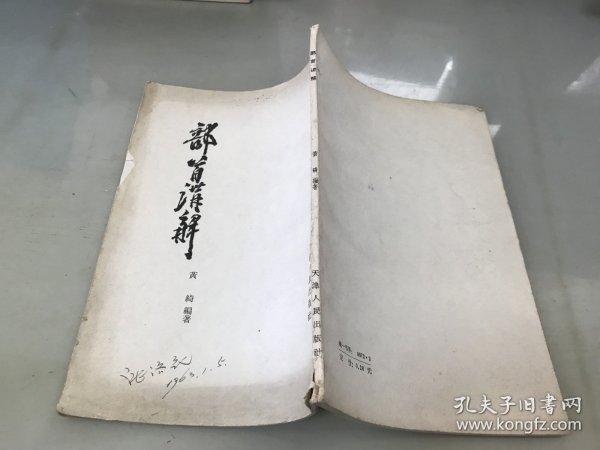 部首讲解
黄绮編著
1963.1.5.
部首讲解
黄绮編著
天津人民出版社
孔夫子旧书网
www.kongfz.com